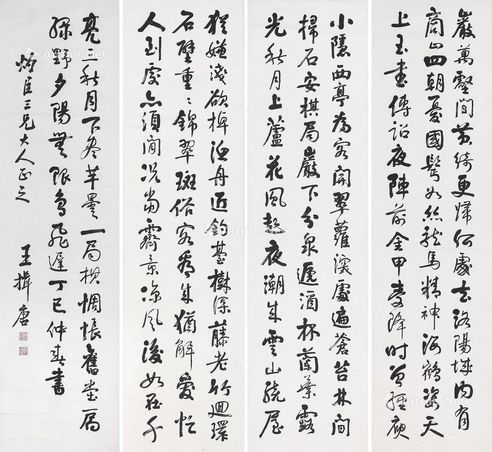 巖萬壑間黃綺更歸何處去洛陽城內有
商山四朝憂國鬢如絲龍馬精神海鶴姿天
上玉書傳詔夜陣前金甲受降時曾經庾
小隱西亭為客開翠蘿深處遍蒼苔林間
掃石安棋局巖下分泉遞酒杯蘭葉露
光秋月上蘆花風起夜潮來雲山繞屋
猶嫌淺欲棹漁舟近釣臺樹深藤老竹迴環
石壁重〻錦翠斑俗客看來猶解愛忙
人到處亦須閒況當霽景涼風後如在千
亮三秋月下盡羊曇一局棋惆悵舊堂扃
綠野夕陽無限鳥飛遲丁巳仲春書
炳臣三兄大人正之
王揖唐